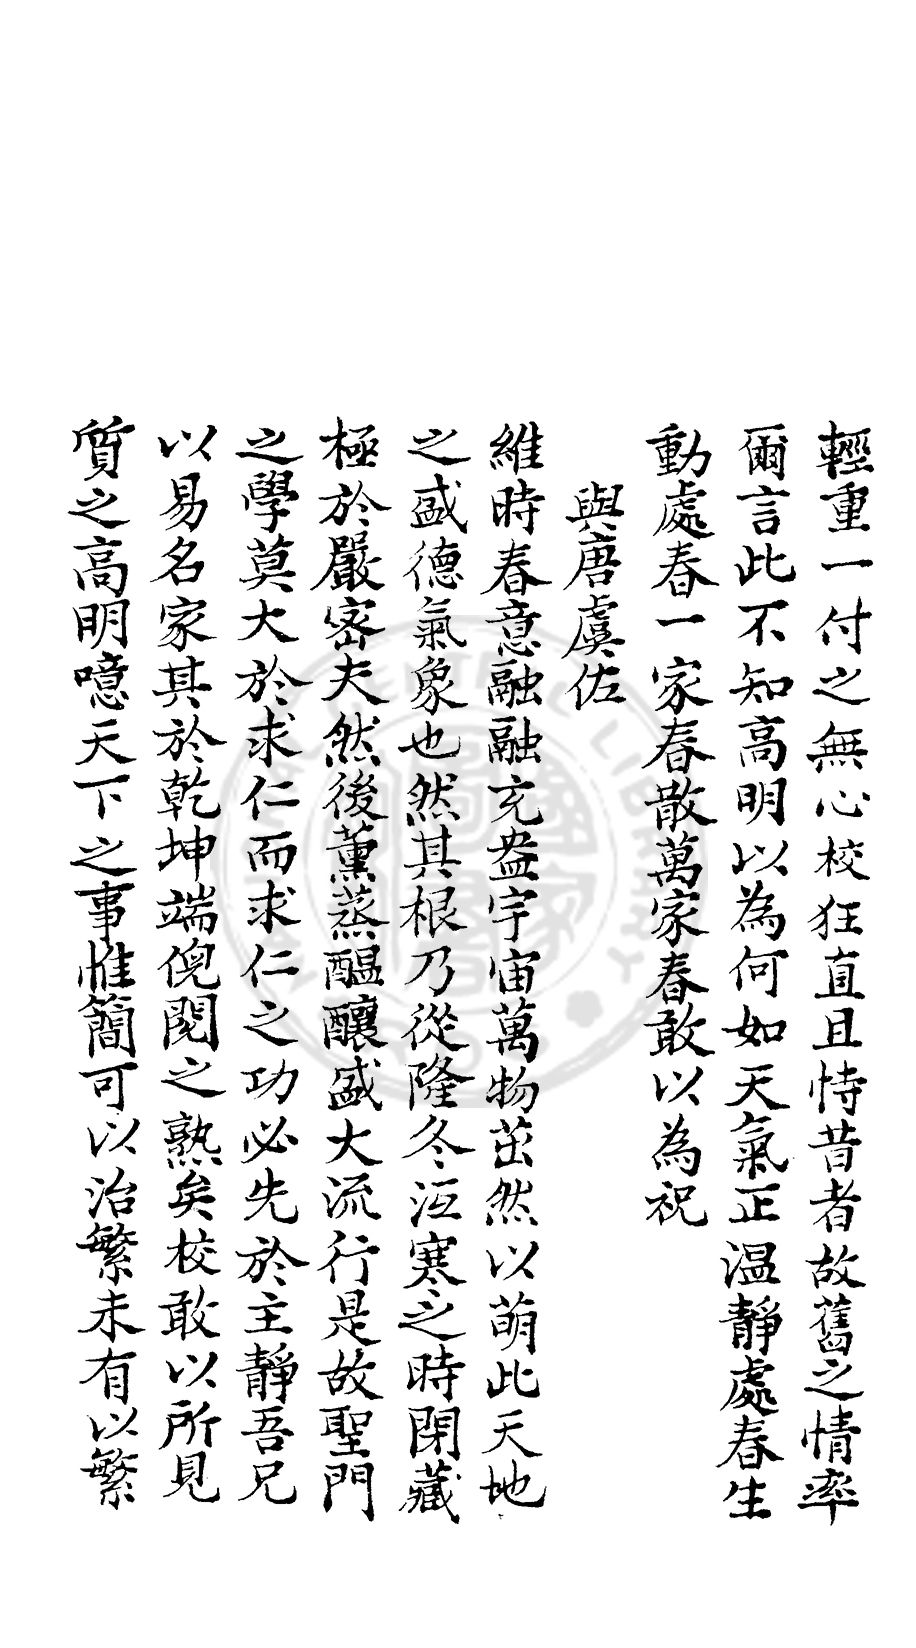 輕重一付之無心校狂直且恃昔者故舊之情率
爾言此不知高明以為何如天氣正温靜處春生
動處春一家春散萬家春敢以為祝
與唐虞佐
維時春意融融充盎宇宙萬物茁然以萌此天地
之盛德氣象也然其根乃從隆冬沍寒之時閉藏
極於嚴宻夫然後薰蒸醖釀盛大流行是故聖門
之學莫大於求仁而求仁之功必先於主靜吾兄
以易名家其於乾坤端倪閱之熟矣校敢以所見
質之高明噫天下之事惟簡可以治繁未有以繁